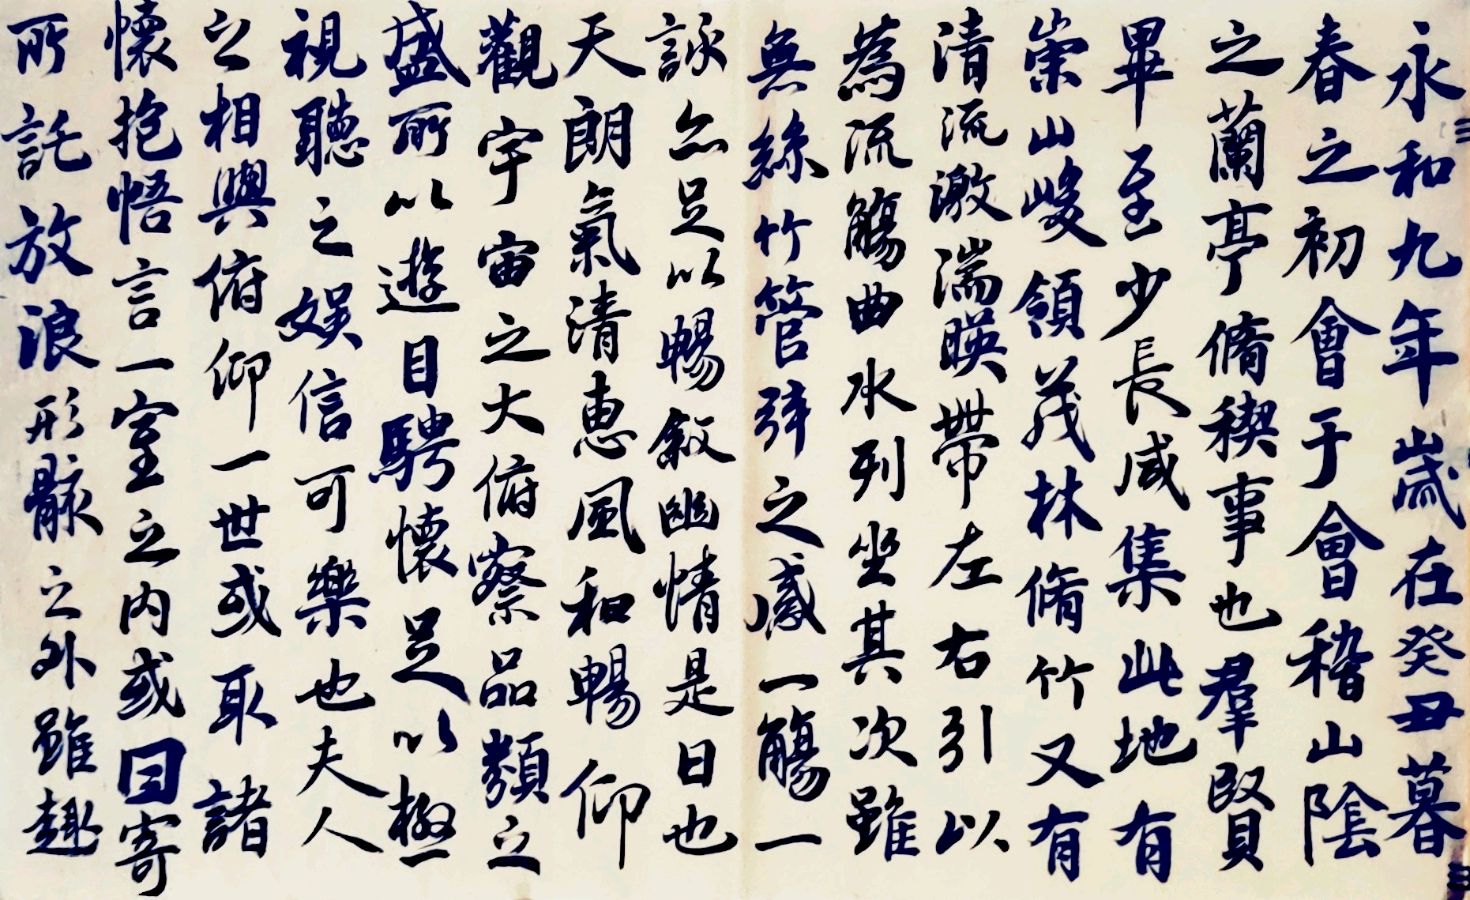 永和九年歲在癸丑暮
春之初會于會稽山陰
之蘭亭脩稧事也羣賢
畢至少長咸集此地有
崇山峻領茂林脩竹又有
清流激湍暎帶左右引以
為流觴曲水列坐其次雖
無絲竹管弦之盛一觴一
詠亦足以暢敘幽情是日也
天朗氣清惠風和暢仰
觀宇宙之大俯察品類之
盛所以遊目騁懷足以極
視聽之娛信可樂也夫人
之相與俯仰一世或取諸
懷抱悟言一室之內或曰寄
所託放浪形骸之外雖趣